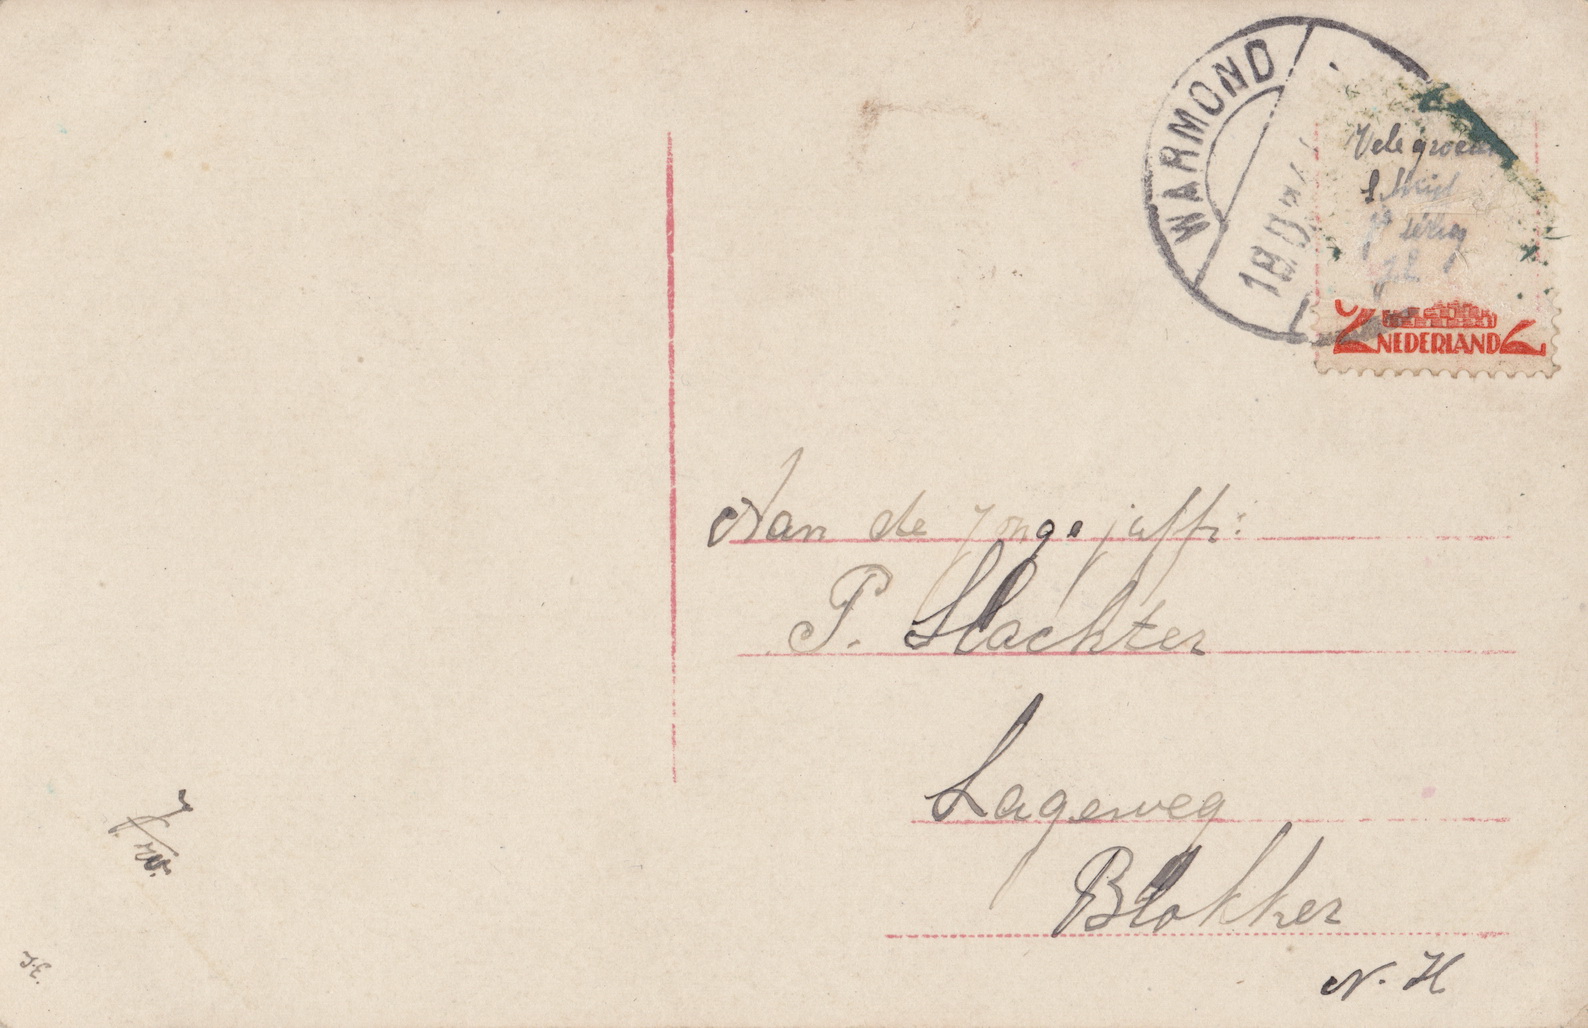 WARMOND
Vele
2 NEDERLAND 2
Aan de jonge juffr:
P. Slachter
Lageweg
Blokker
N. H
J.E.